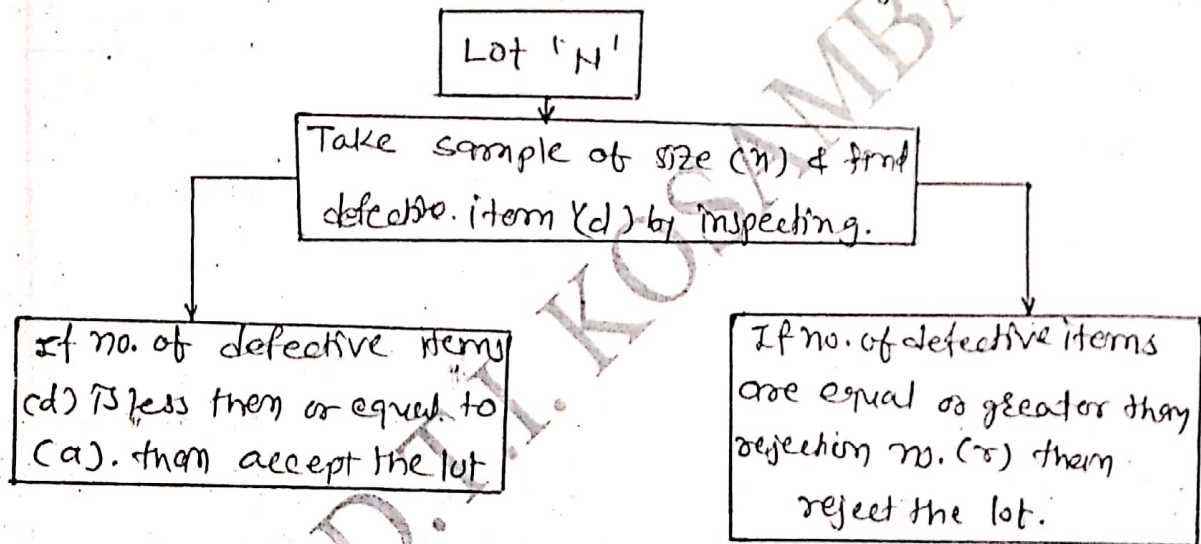 Lot "N'
Take sample of size (n) & find
defective. item (d) by inspecting.
If no. of defective items
(d) is less then or equal to
(a). than accept the lut
If no. of defective items
are equal or greater then
rejection no. (r) then
reject the lot.
D.T.I KOSAMBA